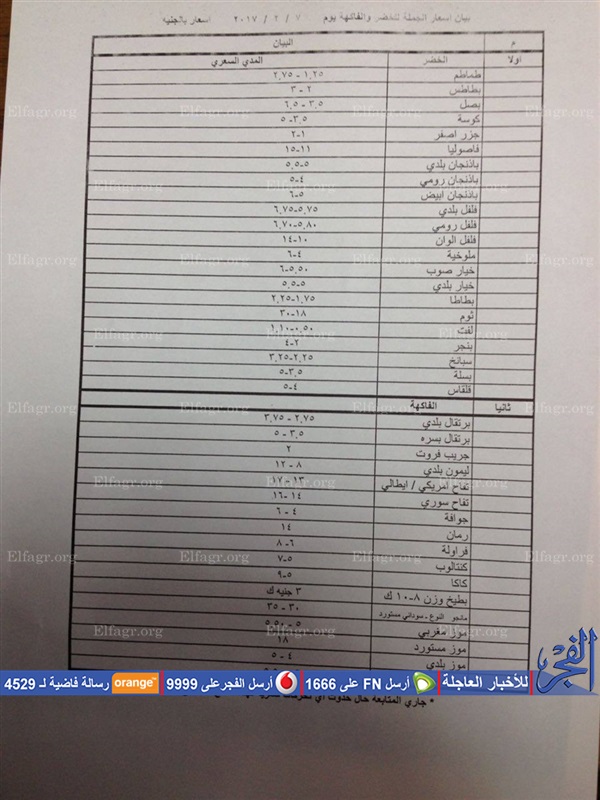 بيان اسعار الجملة للخضر والفاكهة يوم ٧ / ٢ / ٢٠١٧ اسعار بالجنيه
م البيان
اولا الخضر المدي السعري
طماطم ١,٢٥ - ٢,٧٥
بطاطس ٢ - ٣
بصل ٣,٥ - ٦,٥
كوسة ٣,٥-٥
جزر اصفر ١-٢
فاصوليا ١١-١٥
باذنجان بلدي ٥-٥,٥
باذنجان رومي ٤-٥
باذنجان ابيض ٥-٦
فلفل بلدي ٥,٧٥-٦,٧٥
فلفل رومي ٥,٨٠-٦,٧٠
فلفل الوان ١٠-١٤
ملوخية ٤-٦
خيار صوب ٥,٥٠-٦
خيار بلدي ٥-٥,٥
بطاطا ١,٧٥-٢,٢٥
ثوم ١٨-٣٠
لفت ٠,٥٠-١,١٠
بنجر ٢-٤
سبانخ ٢,٢٥-٣,٢٥
بسلة ٣,٥-٥
قلقاس ٤-٥
ثانيا الفاكهة
برتقال بلدي ٢,٧٥ - ٣,٧٥
برتقال بسره ٣,٥ - ٥
جريب فروت ٢
ليمون بلدي ٨ - ١٢
تفاح امريكي / ايطالي ١٣ - ١٧
تفاح سوري ١٤ -١٦
جوافة ٤ - ٦
رمان ١٤
فراولة ٦- ٨
كنتالوب ٥-٧
كاكا ٥-٩
بطيخ وزن ٨-١٠ ك ٣ جنيه ك
مانجو النوع - سوداني مستورد ٣٠ - ٣٥
موز مغربي ٥ - ٥,٥٠
موز مستورد ١٨
موز بلدي ٤ - ٥
الفجر للأخبار العاجلة أرسل FN على 1666 أرسل الفجر على 9999 orange رسالة فاضية لـ 4529
* جاري المتابعة حال حدوث أي
Elfagr.org